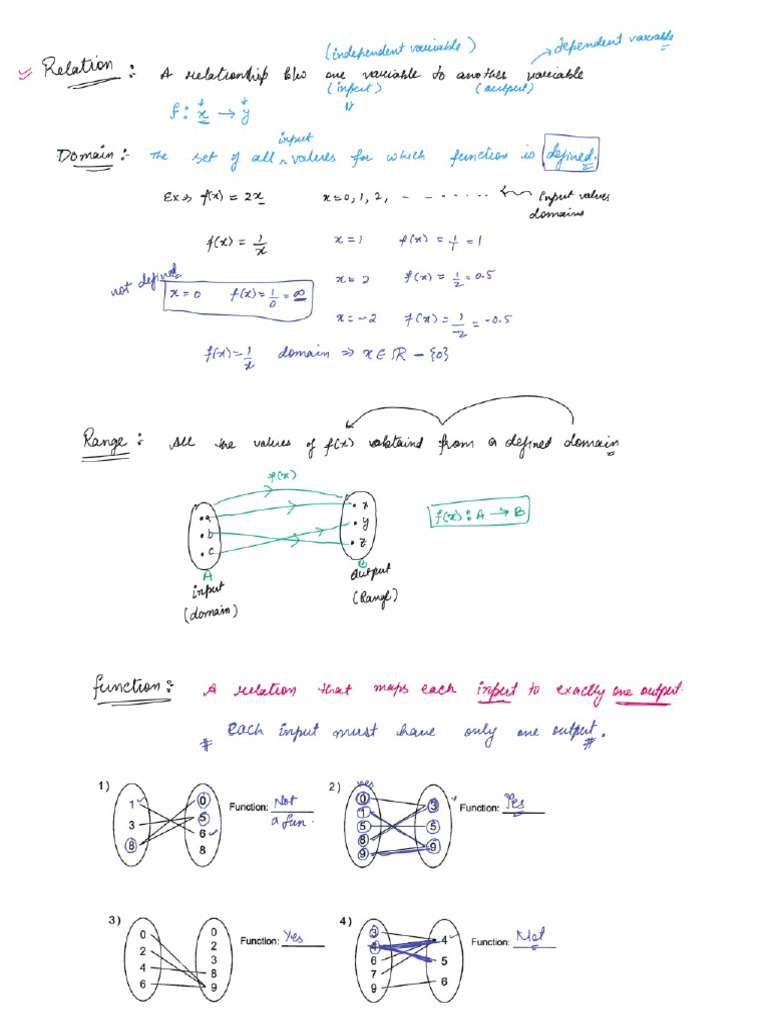 (independent variable) dependent variable
Relation : A relationship b/w one variable to another variable
(input) (output)
f : x → y
input
Domain :- The set of all ^ values for which function is defined.
Ex ⇒ f(x) = 2x x=0, 1, 2, - - - - ...... input values
domains
f(x) = 1/x x=1 f(x) = 1/1 = 1
not defined
x=0 f(x) = 1/0 = ∞ x=2 f(x) = 1/2 = 0.5
x=-2 f(x) = 1/-2 = -0.5
f(x)=1/x domain ⇒ x ∈ R - {0}
Range : All the values of f(x) obtaind from a defined domain
f(x)
a x
b y
c z
f(x) : A → B
A B
input output
(domain) (Range)
function : A relation that maps each input to exactly one output.
# Each input must have only one output. #
1) 2)
yes
1 0
3 5
8 6
8
Function: Not
a fun.
0 3
1 5
5 9
8
9
Function: Yes
3) 4)
0 0
2 2
4 3
6 8
9
Function: Yes
3 4
4 5
6 6
7
9
Function: Not